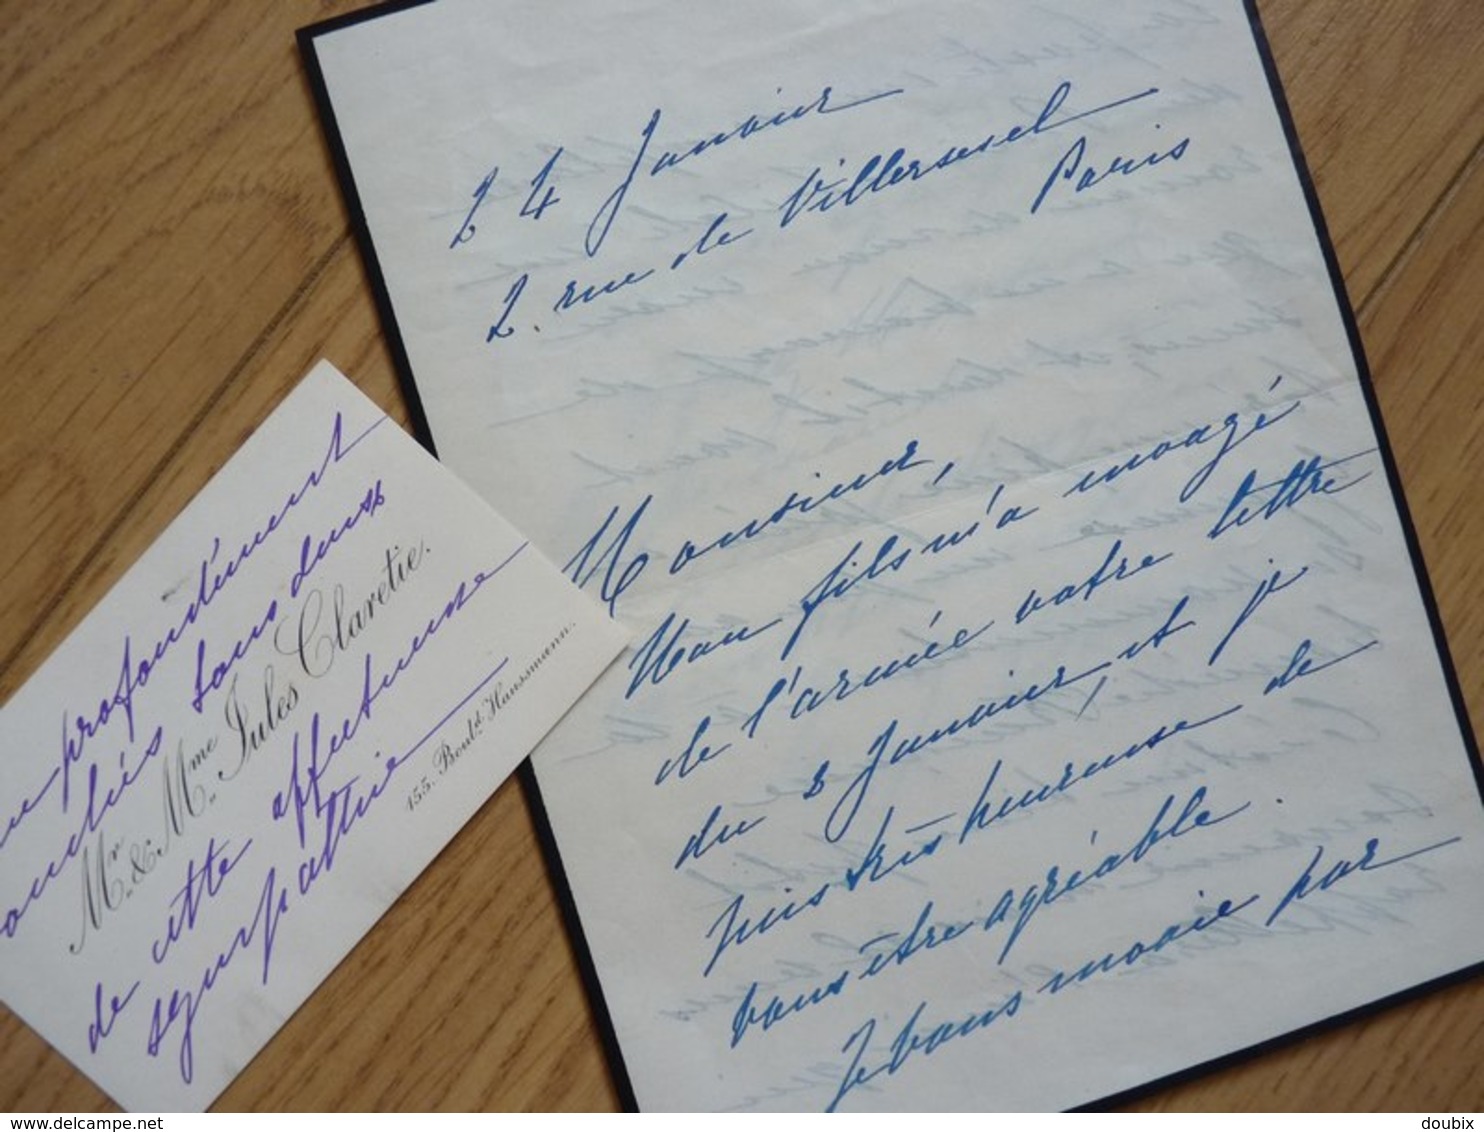 24 Janvier
2. rue de Villersexel
Paris
Monsieur,
Mon fils m'a envoyé
de l'armée votre lettre
du 2 Janvier, et je
suis très heureuse de
vous être agréable.
Je vous envoie par
profondément
touchés tous deux
Mr. & Mme. Jules Claretie.
de cette affectueuse
sympathie
155. Bould. Haussmann.
delcampe.net
doubix